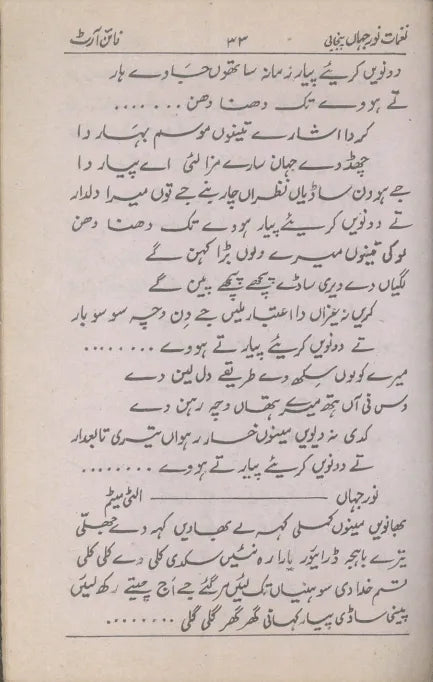 نغمات نورجہاں پنجابی ۳۳ فائن آرٹ
دونویں کریئے پیار زمانہ ساتھوں جاوے ہار
تے ہووے تک دھنا دھن ........
کردا اشارے تینوں موسم بہار دا
چھڈ دے جہان سارے مزا لئی اے پیار دا
جے ہو دن ساڈیاں نظراں چار بنے جے توں میرا دلدار
تے دونویں کریئے پیار ہووے تک دھنا دھن
لوکی تینوں میرے ولوں بڑا کہن گے
گلیاں دے ویری ساڈے پچھے پچھے پین گے
کریں نہ غیراں دا اعتبار ملیں جے دن وچہ سو سو بار
تے دونویں کریئے پیار تے ہووے ........
میرے کولوں سکھ دے طریقے دل لین دے
دس نی آں ہتھ میرے ہتھاں وچہ رہن دے
کدی نہ دیویں مینوں خمار رہواں تیری تابعدار
تے دونویں کریئے پیار تے ہووے ........
نورجہاں ——— الٹی میٹم
بھانویں مینوں کملی کہہ لے بھاویں کہہ دے جھلّی
تیرے باہجہ ڈرائیور یارا رہ نئیں سکدی کلی دے کلی کلی
قسم خدا دی سوہنیاں تک لئیں مر گئے جے اَج چیتے رکھ لئیں
پینی ساڈی پیار کہانی گھر گھر گلی گلی ........